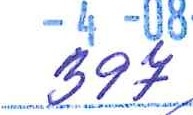 - 4 -08
397